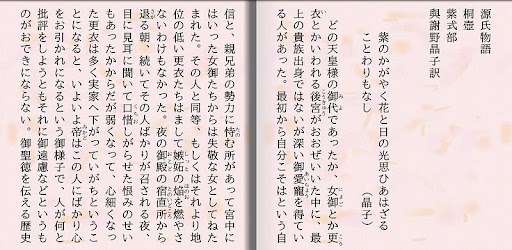 源氏物語
桐壺
紫式部
與謝野晶子訳
紫のかがやく花と日の光思ひあはざる
ことわりもなし
(晶子)
どの天皇様の御代であったか、女御とか更
衣とかいわれる後宮がおおぜいいた中に、最
上の貴族出身ではないが深い御愛寵を得てい
る人があった。最初から自分こそはという自
信と、親兄弟の勢力に恃む所があって宮中に
はいった女御たちからは失敬な女としてねた
まれた。その人と同等、もしくはそれより地
位の低い更衣たちはまして嫉妬の焔を燃やさ
ないわけもなかった。夜の御殿の宿直所から
退る朝、続いてその人ばかりが召される夜、
目に見耳に聞いて口惜しがらせた恨みのせい
もあったかからだが弱くなって、心細くなっ
た更衣は多く実家へ下がっていがちというこ
とになると、いよいよ帝はこの人にばかり心
をお引かれになるという御様子で、人が何と
批評をしようともそれに御遠慮などというも
のがおできにならない。御聖徳を伝える歴史